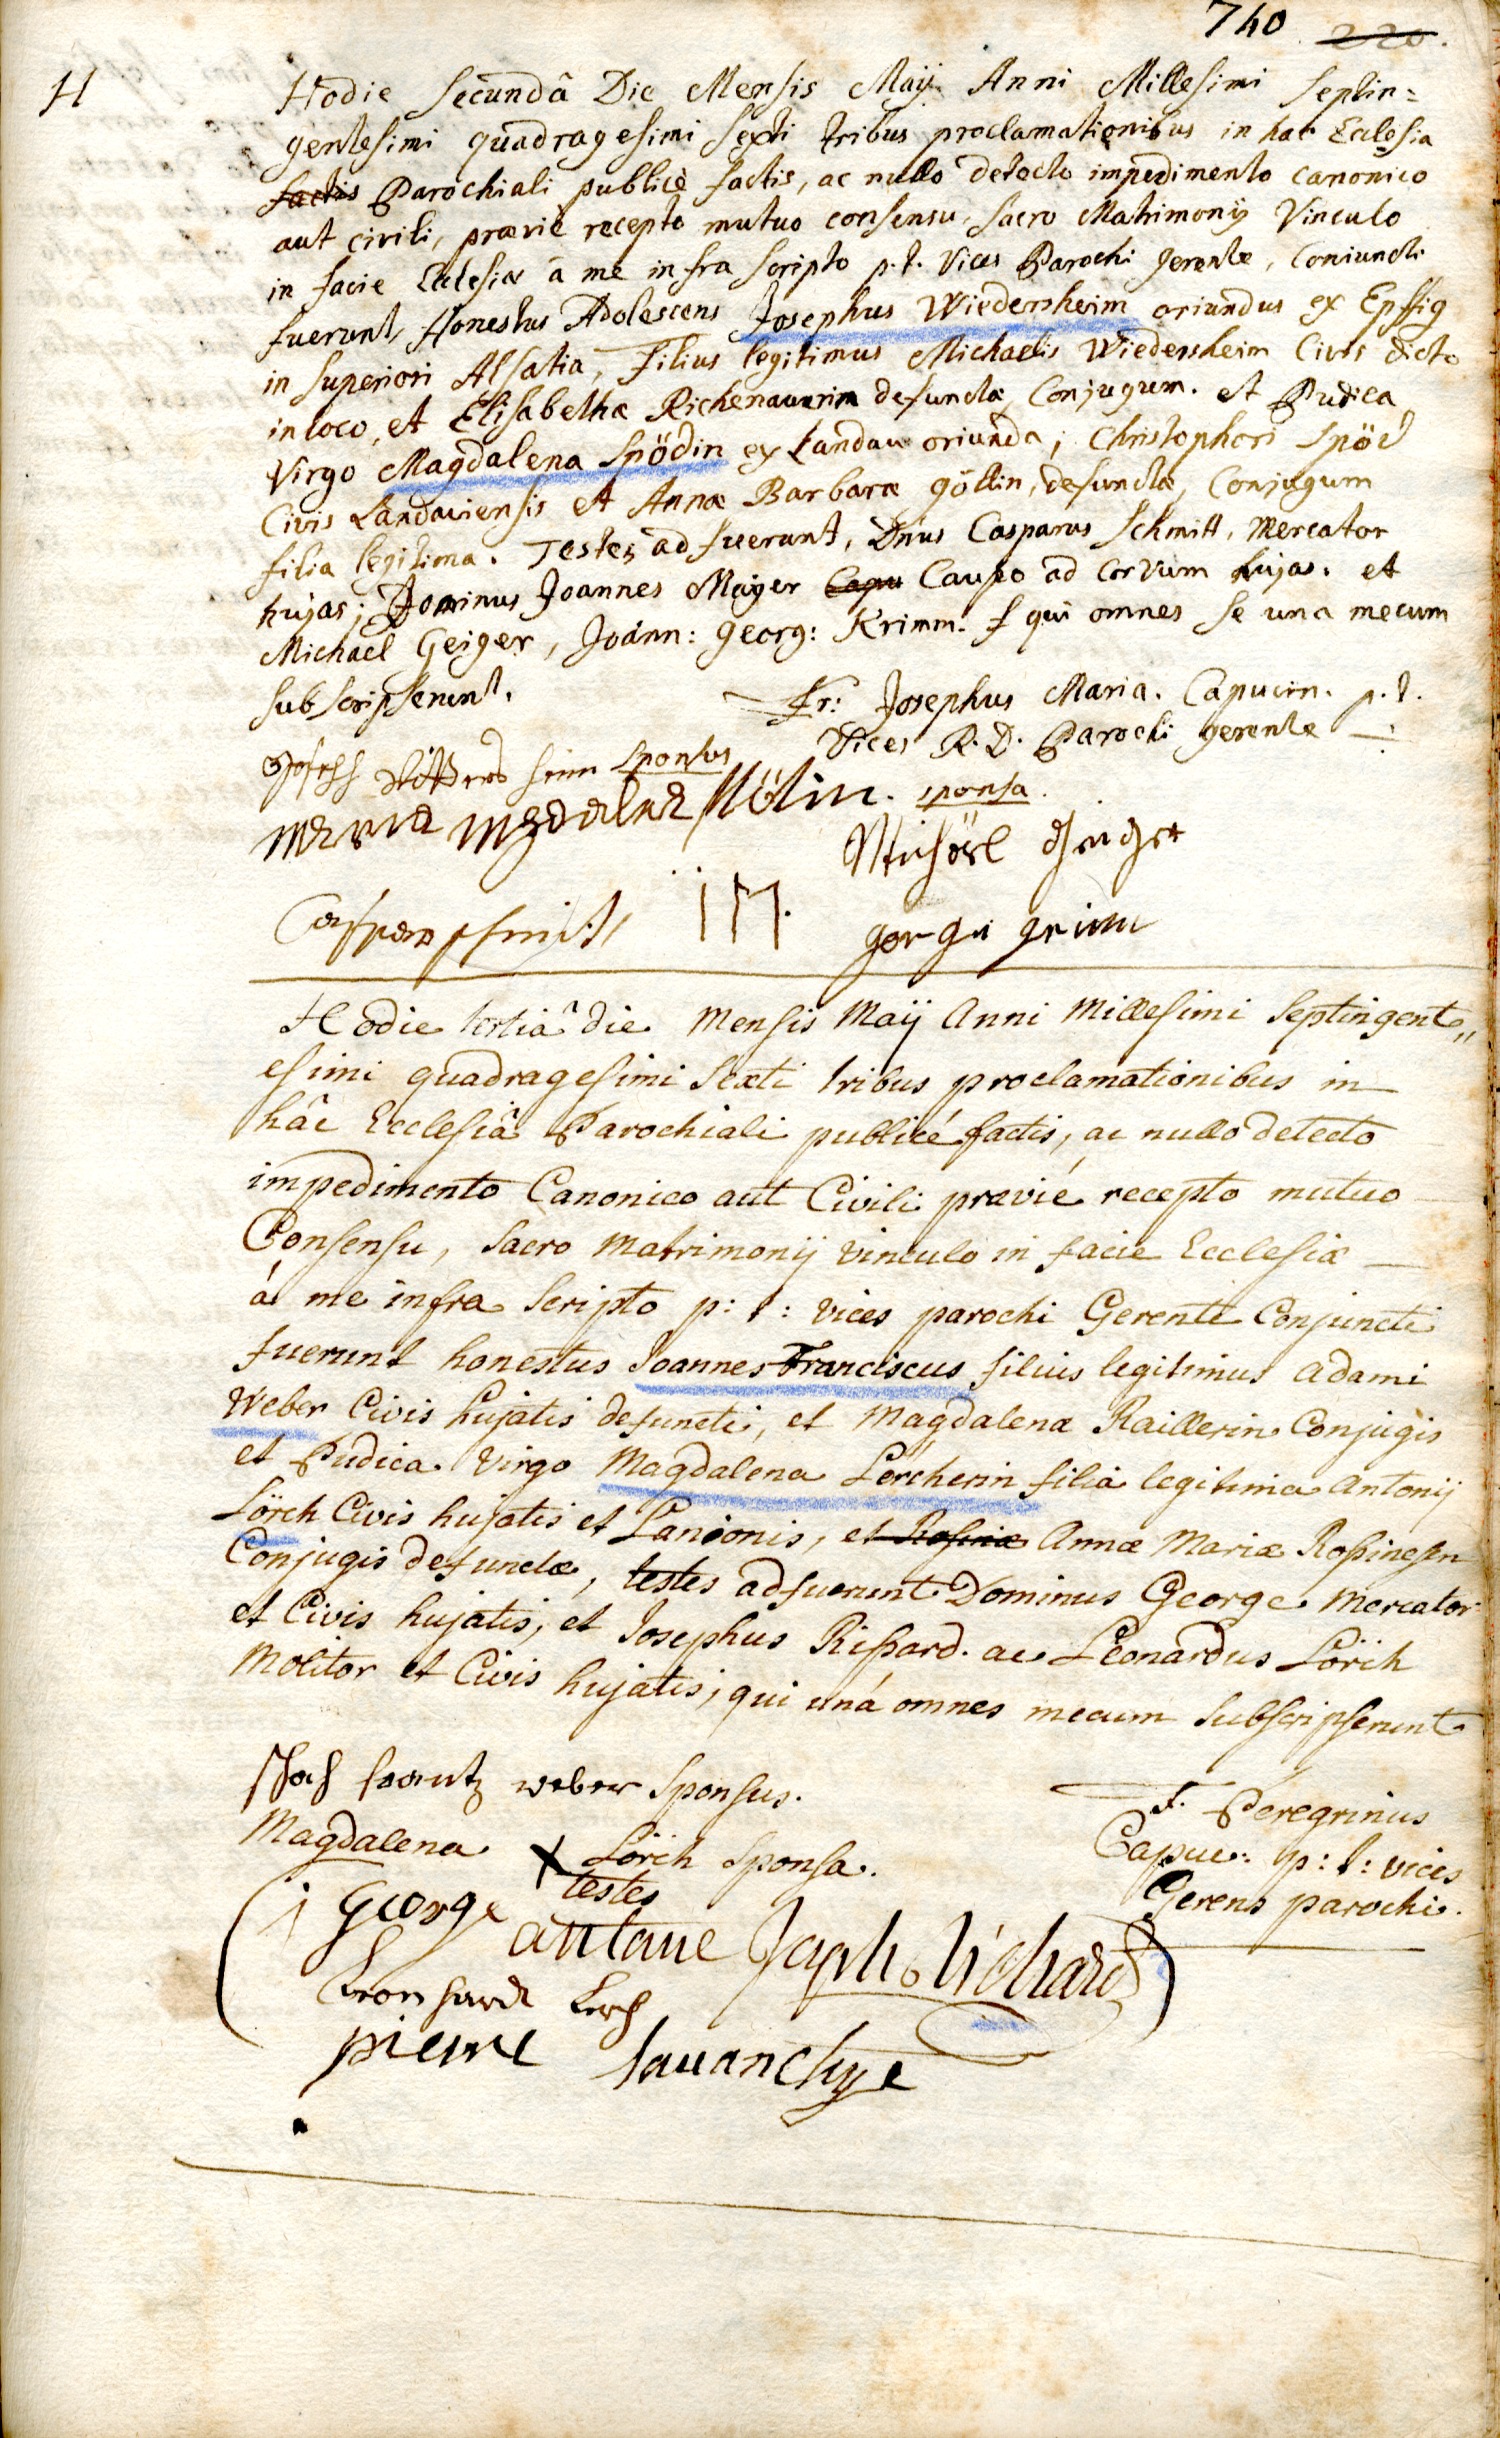 740 220.
H
Hodie Secundâ Die Mensis Maij Anni Millesimi Septin=
gentesimi quadragesimi Sexti tribus proclamationibus in hac Ecclesia
factis Parochiali publicè factis, ac nullo detecto impedimento canonico
aut civili, prævié recepto mutuo consensu, Sacro Matrimonij Vinculo
in facie Ecclesiæ à me infra scripto p.t. Vices Parochi gerente, Coniuncti
fuerunt, Honestus Adolescens Josephus Wiedersheim oriundus ex Epffig
in Superiori Alsatia, Filius legitimus Michaelis Wiedersheim Civis dicto
in loco, et Elisabetha Richenauerin defunctæ, Conjugum. et Pudica
Virgo Magdalena Spödin ex Landau oriunda; Christophori Spöd
Civis Landaviensis et Annæ Barbaræ Göttin, defunctæ, Conjugum
filia legitima. Testes adfuerunt, Dnus Casparus Schmitt, Mercator
hujas; Dominus Joannes Mayer Capu Caupo ad Corvum hujas. et
Michael Geiger, Joann: Georg: Krimm. qui omnes Se una mecum
Subscripserunt.
Fr: Josephus Maria. Capucin. p.t.
Vices R.D. Parochi gerente
Sponsus
maria magdalena sponsa.
Michael Geiger
Casper Schmitt
IM.
gorg grim
Hodie tertiâ die Mensis Maij Anni Millesimi Septingent„
esimi quadragesimi Sexti tribus proclamationibus in
hâc Ecclesiâ Parochiali publicé factis, ac nullo detecto
impedimento Canonico aut Civili prævié recepto mutuo
Consensu, Sacro Matrimonij vinculo in facie Ecclesiæ
á me infra Scripto p: t: vices parochi Gerente Conjuncti
fuerunt honestus Joannes Franciscus filius legitimus Adami
Weber Civis hujatis defuncti, et Magdalenæ Raillerin Conjugis
et Pudica Virgo Magdalena Lörcherin filia legitima Antonij
Lörch Civis hujatis et Lanionis, et Rosinæ Annæ Mariæ
Conjugis defunctæ, testes adfuerunt Dominus George Mercator
et Civis hujatis, et Josephus Rißard. ac Leonardus Lörch
Molitor et Civis hujatis; qui uná omnes mecum Subscripserunt
frantz weber Sponsus.
Magdalena X Lörch Sponsa.
testes
F. Peregrinus
Capuc: p: t: vices
Gerens parochi.
George
antoine Joseph Richard
Leonhard Lerch
pierre